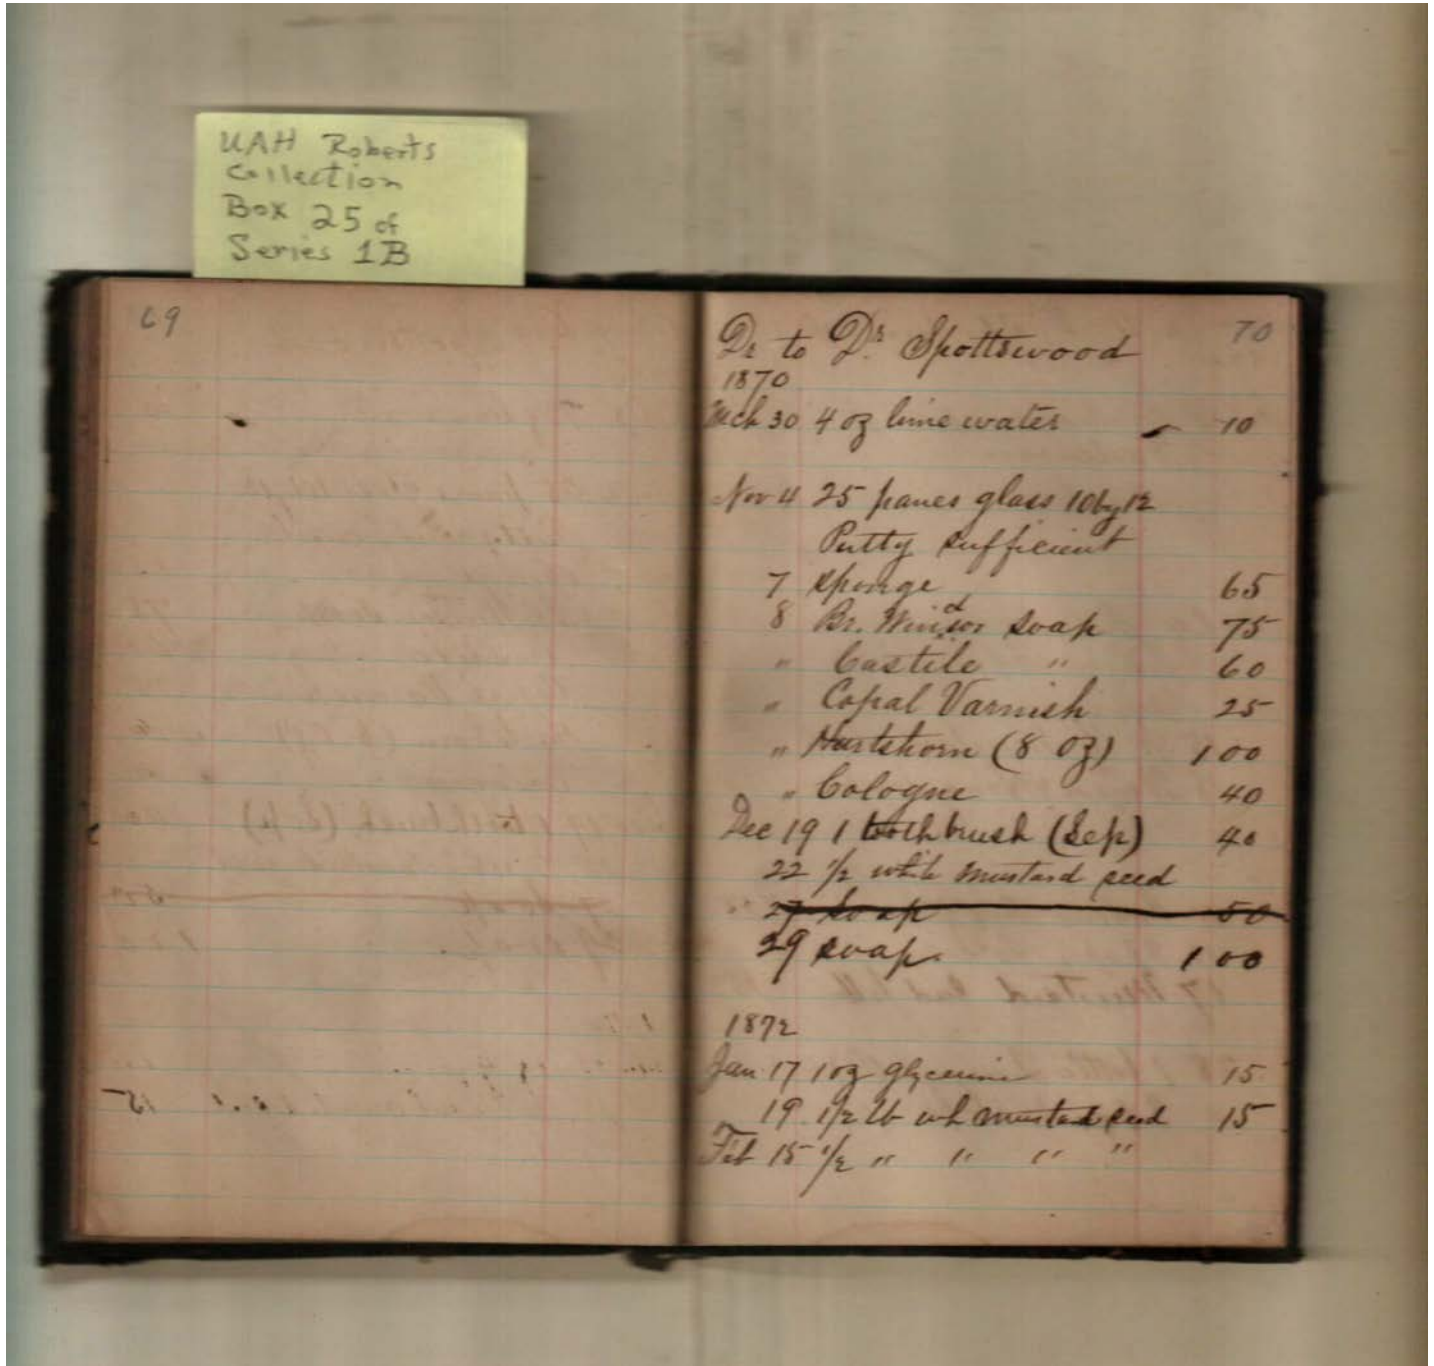 UAH Roberts
Collection
Box 25 of
Series 1B
69
70
Dr to Dr. Spottswood
1870
Mch 30 4 oz lime water 10
Nov 4 25 panes glass 10 by 12
Putty sufficient
7 sponge 65
8 Br. Windsor soap 75
" Castile " 60
" Copal Varnish 25
" Hartshorn (8 oz) 1 00
" Cologne 40
Dec 19 1 toothbrush (Sep) 40
22 1/2 white mustard seed
27 Soap 50
29 soap. 1 00
1872
Jan 17 1 oz glycerine 15
19 1/2 lb wh mustard seed 15
Feb 15 1/2 " " " "